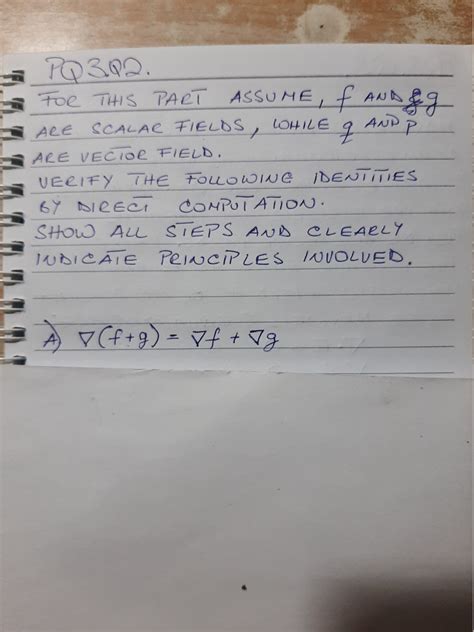 PQ3Q2.
FOR THIS PART ASSUME, f AND g
ARE SCALAR FIELDS, WHILE q AND p
ARE VECTOR FIELD.
VERIFY THE FOLLOWING IDENTITIES
BY DIRECT COMPUTATION.
SHOW ALL STEPS AND CLEARLY
INDICATE PRINCIPLES INVOLVED.
A) ∇(f+g) = ∇f + ∇g